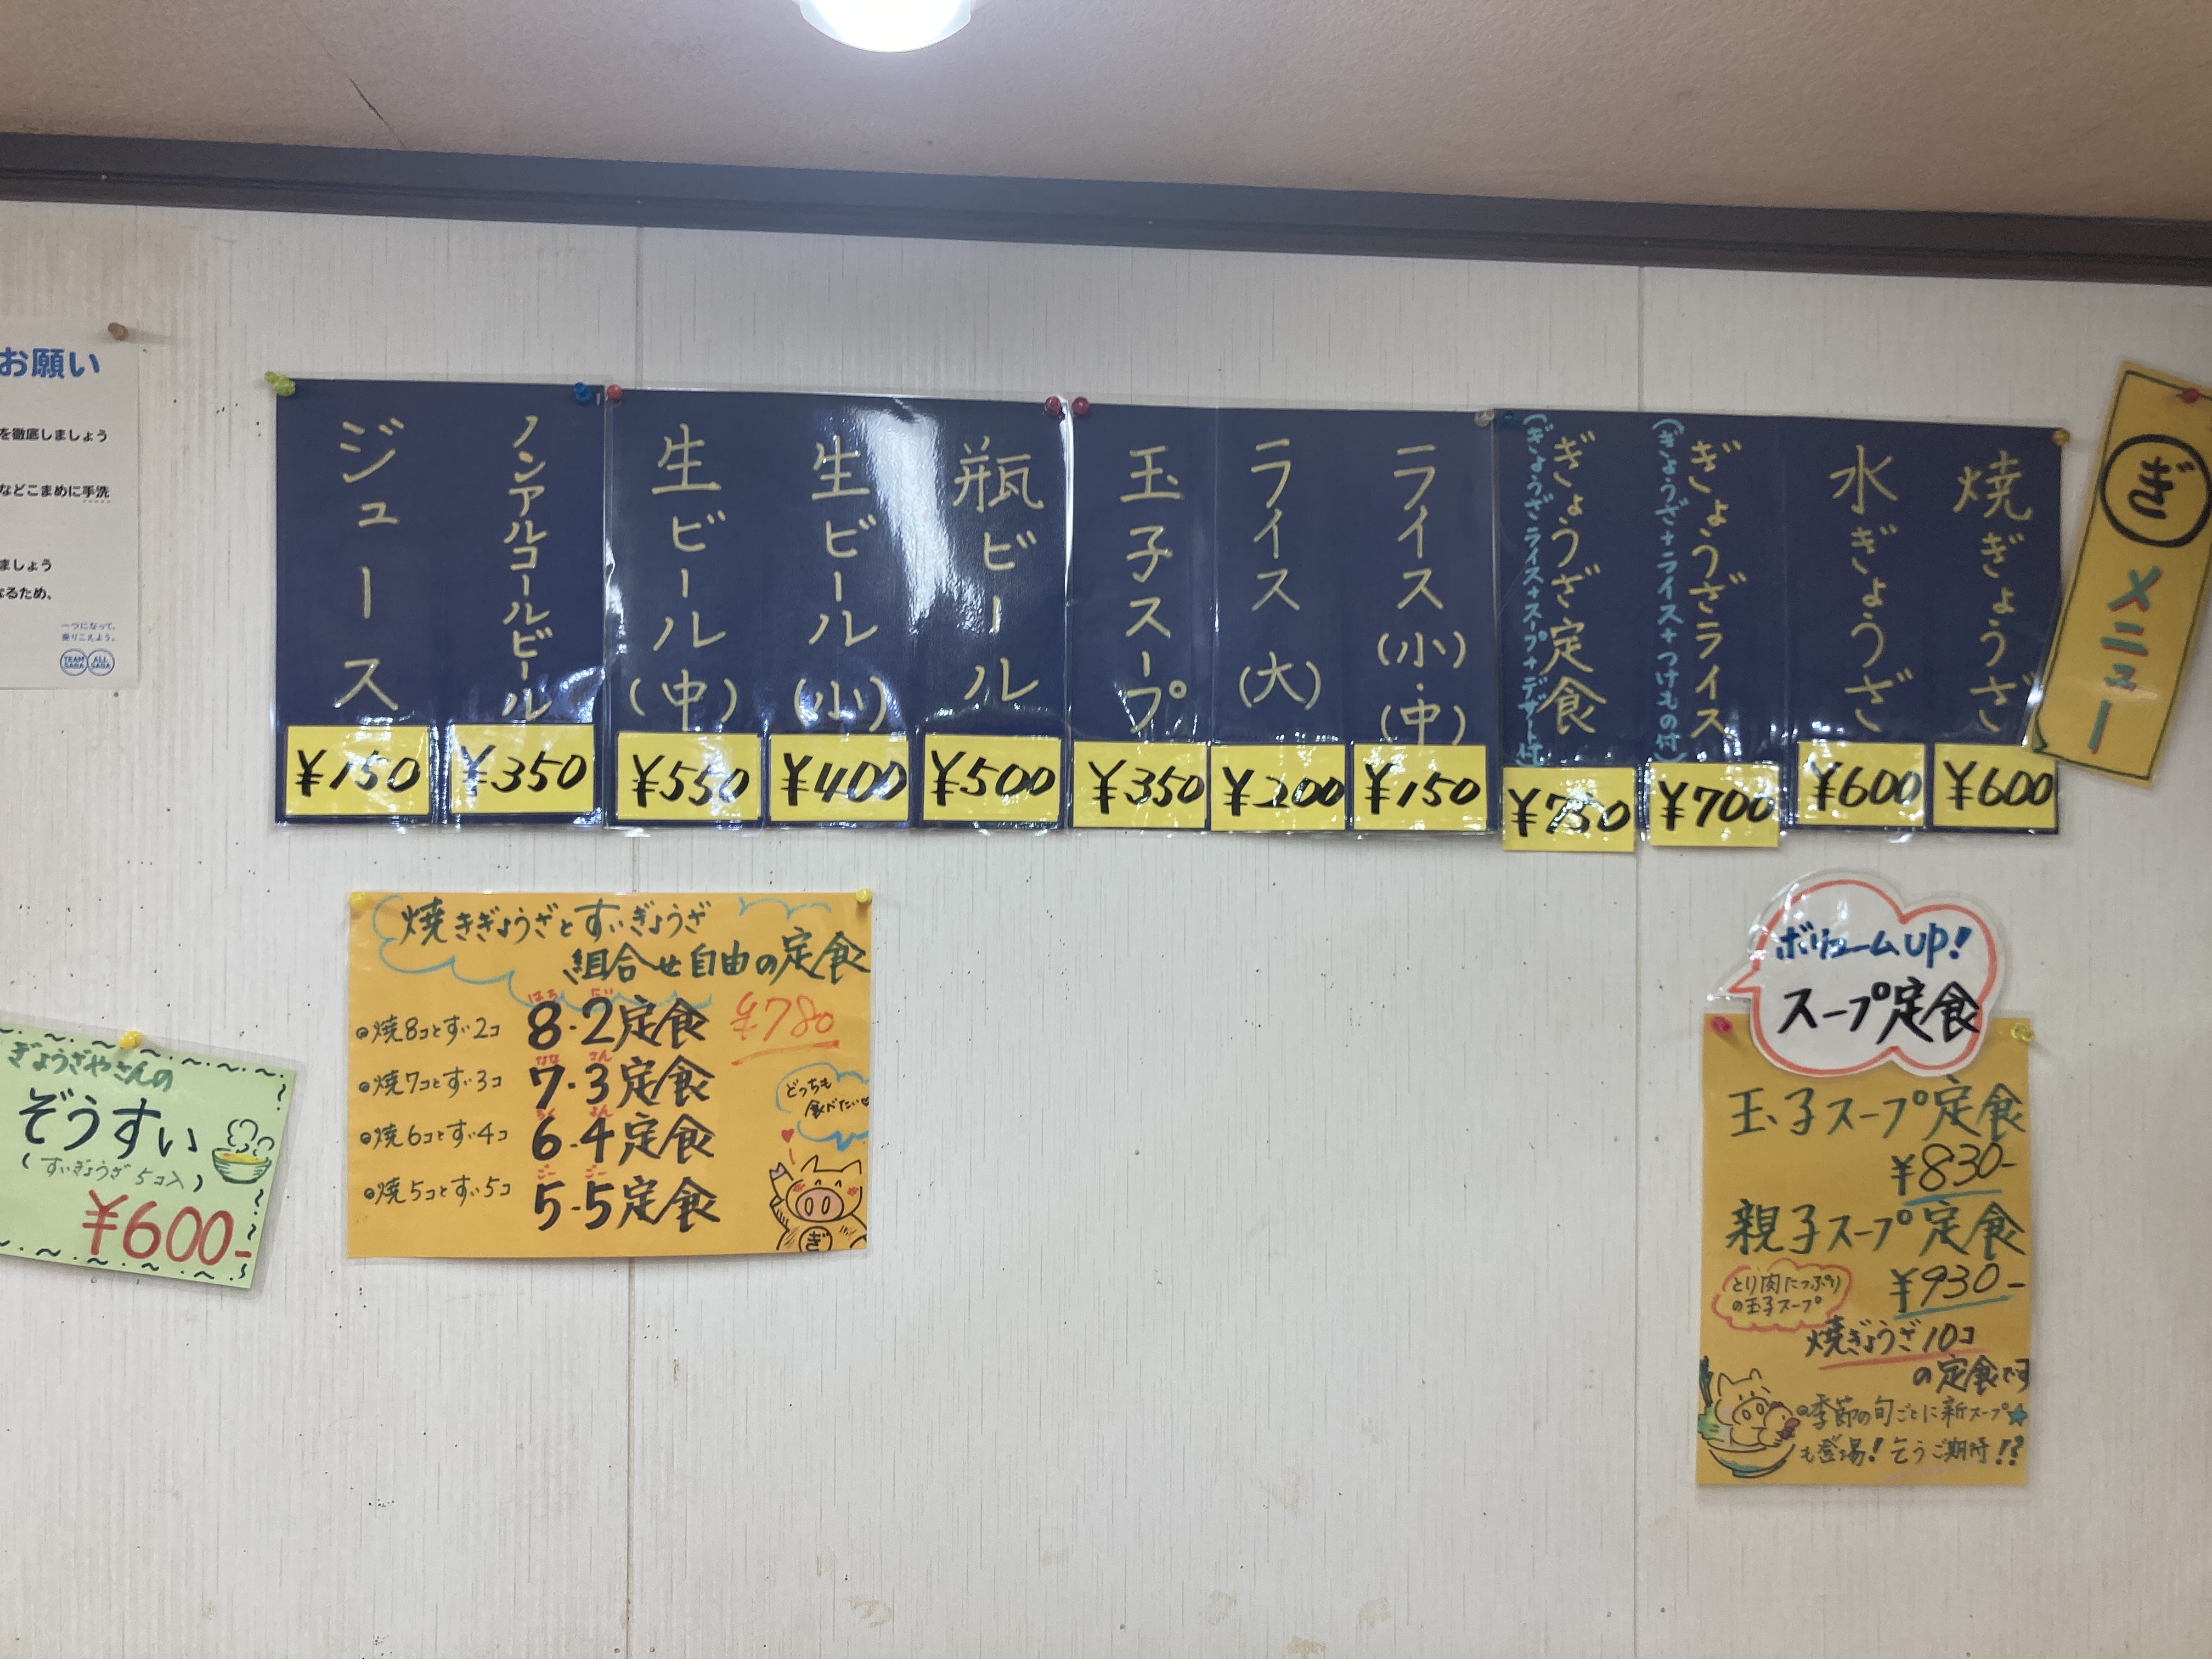 ぎ
メニュー
焼ぎょうざ
¥600
水ぎょうざ
¥600
ぎょうざライス
(ぎょうざ+ライス+つけもの付)
¥700
ぎょうざ定食
(ぎょうざライス+スープ+デザート付)
¥750
ライス(小・中)
¥150
ライス(大)
¥200
玉子スープ
¥350
瓶ビール
¥500
生ビール(小)
¥400
生ビール(中)
¥550
ノンアルコールビール
¥350
ジュース
¥150
お願い
を徹底しましょう
などこまめに手洗
ましょう
なるため、
一つになって、
乗りこえよう。
TEAM SAGA
ALL SAGA
焼きぎょうざとすいぎょうざ
組合せ自由の定食
はち に
●焼8コとすい2コ 8・2定食 ¥780
なな さん
●焼7コとすい3コ 7・3定食
ろく よん
●焼6コとすい4コ 6・4定食
ごー ごー
●焼5コとすい5コ 5・5定食
どっちも
食べたい
ぎ
ぎょうざやさんの
ぞうすい
(すいぎょうざ5コ入)
¥600-
ボリュームUP!
スープ定食
玉子スープ定食
¥830-
親子スープ定食
¥930-
とり肉たっぷり
の玉子スープ
焼ぎょうざ10コ
の定食です
●季節の旬ごとに新スープ★
も登場!乞うご期待!?